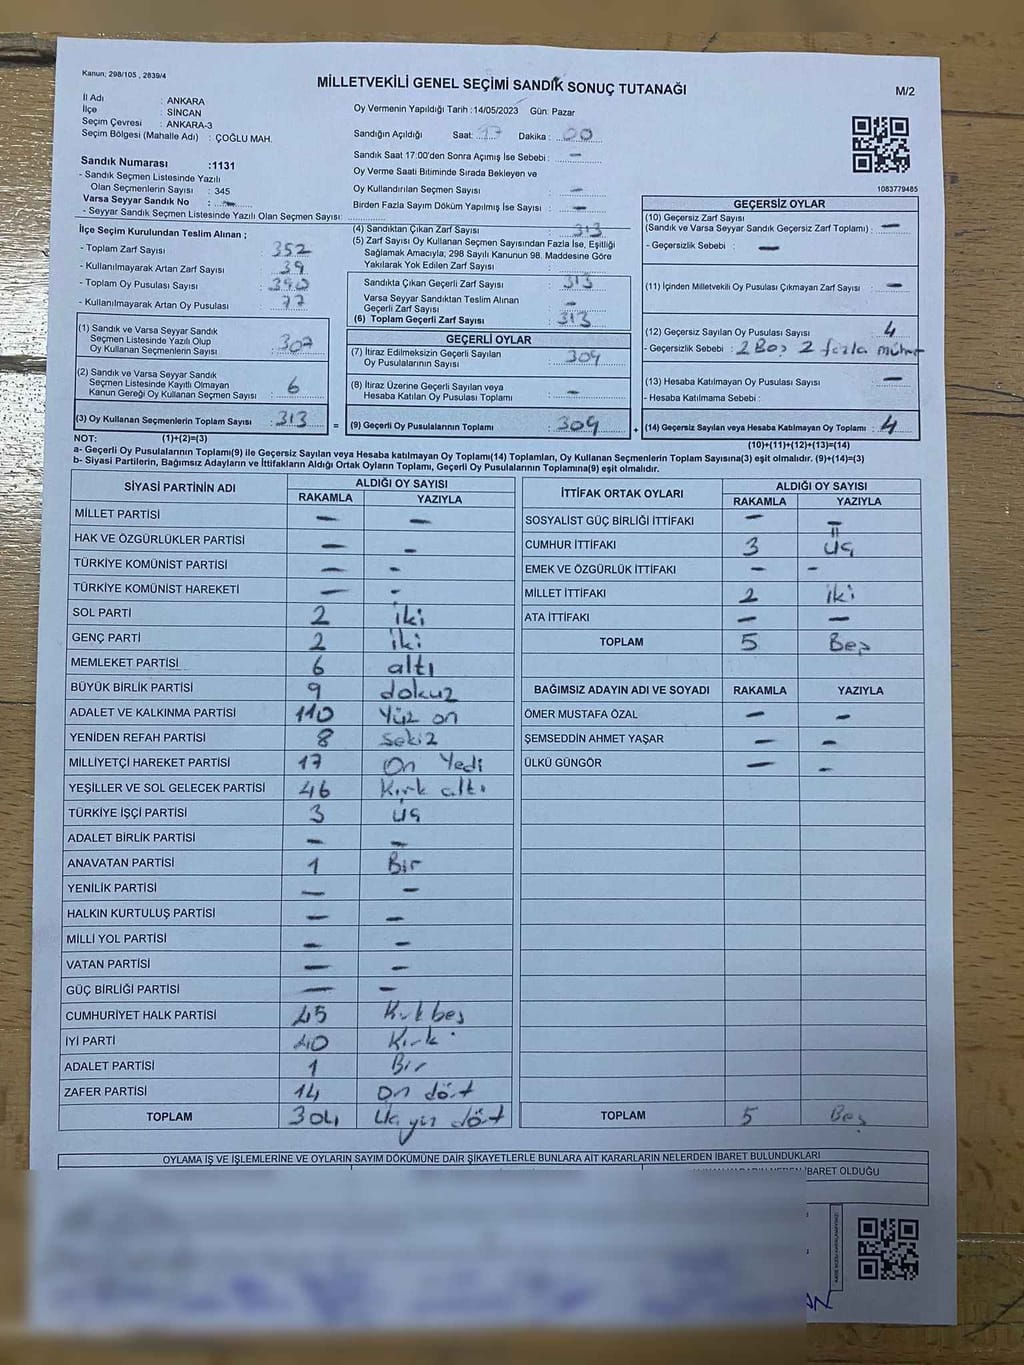 Kanun: 298/105 , 2839/4
MİLLETVEKİLİ GENEL SEÇİMİ SANDIK SONUÇ TUTANAĞI
M/2
İl Adı : ANKARA
İlçe : SİNCAN
Seçim Çevresi : ANKARA-3
Seçim Bölgesi (Mahalle Adı) : ÇOĞLU MAH.
Oy Vermenin Yapıldığı Tarih :14/05/2023 Gün: Pazar
Sandığın Açıldığı Saat: 17 Dakika : 00
Sandık Saat 17:00'den Sonra Açımış İse Sebebi : —
Oy Verme Saati Bitiminde Sırada Bekleyen ve
Oy Kullandırılan Seçmen Sayısı —
Birden Fazla Sayım Döküm Yapılmış İse Sayısı : —
1083779485
Sandık Numarası :1131
- Sandık Seçmen Listesinde Yazılı
Olan Seçmenlerin Sayısı : 345
Varsa Seyyar Sandık No : —
- Seyyar Sandık Seçmen Listesinde Yazılı Olan Seçmen Sayısı:
İlçe Seçim Kurulundan Teslim Alınan ;
- Toplam Zarf Sayısı : 352
- Kullanılmayarak Artan Zarf Sayısı : 39
- Toplam Oy Pusulası Sayısı : 390
- Kullanılmayarak Artan Oy Pusulası : 77
(1) Sandık ve Varsa Seyyar Sandık
Seçmen Listesinde Yazılı Olup
Oy Kullanan Seçmenlerin Sayısı : 307
(2) Sandık ve Varsa Seyyar Sandık
Seçmen Listesinde Kayıtlı Olmayan
Kanun Gereği Oy Kullanan Seçmen Sayısı : 6
(3) Oy Kullanan Seçmenlerin Toplam Sayısı : 313 =
(4) Sandıktan Çıkan Zarf Sayısı : 313
(5) Zarf Sayısı Oy Kullanan Seçmen Sayısından Fazla İse, Eşitliği
Sağlamak Amacıyla; 298 Sayılı Kanunun 98. Maddesine Göre
Yakılarak Yok Edilen Zarf Sayısı :
Sandıkta Çıkan Geçerli Zarf Sayısı : 313
Varsa Seyyar Sandıktan Teslim Alınan
Geçerli Zarf Sayısı : —
(6) Toplam Geçerli Zarf Sayısı : 313
GEÇERLİ OYLAR
(7) İtiraz Edilmeksizin Geçerli Sayılan
Oy Pusulalarının Sayısı : 309
(8) İtiraz Üzerine Geçerli Sayılan veya
Hesaba Katılan Oy Pusulası Toplamı : —
(9) Geçerli Oy Pusulalarının Toplamı : 309 +
GEÇERSİZ OYLAR
(10) Geçersiz Zarf Sayısı
(Sandık ve Varsa Seyyar Sandık Geçersiz Zarf Toplamı) : —
- Geçersizlik Sebebi : —
(11) İçinden Milletvekili Oy Pusulası Çıkmayan Zarf Sayısı : —
(12) Geçersiz Sayılan Oy Pusulası Sayısı : 4
- Geçersizlik Sebebi : 2 Boş 2 fazla mühür
(13) Hesaba Katılmayan Oy Pusulası Sayısı : —
- Hesaba Katılmama Sebebi :
(14) Geçersiz Sayılan veya Hesaba Katılmayan Oy Toplamı : 4
NOT: (1)+(2)=(3)
(10)+(11)+(12)+(13)=(14)
a- Geçerli Oy Pusulalarının Toplamı(9) ile Geçersiz Sayılan veya Hesaba katılmayan Oy Toplamı(14) Toplamları, Oy Kullanan Seçmenlerin Toplam Sayısına(3) eşit olmalıdır. (9)+(14)=(3)
b- Siyasi Partilerin, Bağımsız Adayların ve İttifakların Aldığı Ortak Oyların Toplamı, Geçerli Oy Pusulalarının Toplamına(9) eşit olmalıdır.
SİYASİ PARTİNİN ADI ALDIĞI OY SAYISI
RAKAMLA YAZIYLA
MİLLET PARTİSİ — —
HAK VE ÖZGÜRLÜKLER PARTİSİ — —
TÜRKİYE KOMÜNİST PARTİSİ — —
TÜRKİYE KOMÜNİST HAREKETİ — —
SOL PARTİ 2 iki
GENÇ PARTİ 2 iki
MEMLEKET PARTİSİ 6 altı
BÜYÜK BİRLİK PARTİSİ 9 dokuz
ADALET VE KALKINMA PARTİSİ 110 Yüz on
YENİDEN REFAH PARTİSİ 8 sekiz
MİLLİYETÇİ HAREKET PARTİSİ 17 On Yedi
YEŞİLLER VE SOL GELECEK PARTİSİ 46 Kırk altı
TÜRKİYE İŞÇİ PARTİSİ 3 üç
ADALET BİRLİK PARTİSİ — —
ANAVATAN PARTİSİ 1 Bir
YENİLİK PARTİSİ — —
HALKIN KURTULUŞ PARTİSİ — —
MİLLİ YOL PARTİSİ — —
VATAN PARTİSİ — —
GÜÇ BİRLİĞİ PARTİSİ — —
CUMHURİYET HALK PARTİSİ 45 Kırkbeş
İYİ PARTİ 40 Kırk
ADALET PARTİSİ 1 Bir
ZAFER PARTİSİ 14 On dört
TOPLAM 304 Üç yüz dört
İTTİFAK ORTAK OYLARI ALDIĞI OY SAYISI
RAKAMLA YAZIYLA
SOSYALİST GÜÇ BİRLİĞİ İTTİFAKI — —
CUMHUR İTTİFAKI 3 üç
EMEK VE ÖZGÜRLÜK İTTİFAKI — —
MİLLET İTTİFAKI 2 iki
ATA İTTİFAKI — —
TOPLAM 5 Beş
BAĞIMSIZ ADAYIN ADI VE SOYADI RAKAMLA YAZIYLA
ÖMER MUSTAFA ÖZAL — —
ŞEMSEDDİN AHMET YAŞAR — —
ÜLKÜ GÜNGÖR — —
TOPLAM 5 Beş
OYLAMA İŞ VE İŞLEMLERİNE VE OYLARIN SAYIM DÖKÜMÜNE DAİR ŞİKAYETLERLE BUNLARA AİT KARARLARIN NELERDEN İBARET BULUNDUKLARI
İBARET OLDUĞU